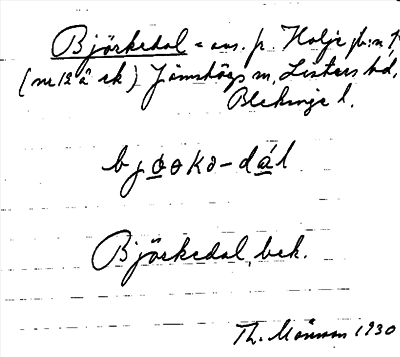 Björkedal = avs. p. Holje jb:n 1
(nr 12 å ek) Jämshögs sn, Listers hd,
Blekinge l.
bjɵɵkə-dál
Björkedal, bek.
Th. Månsson 1930